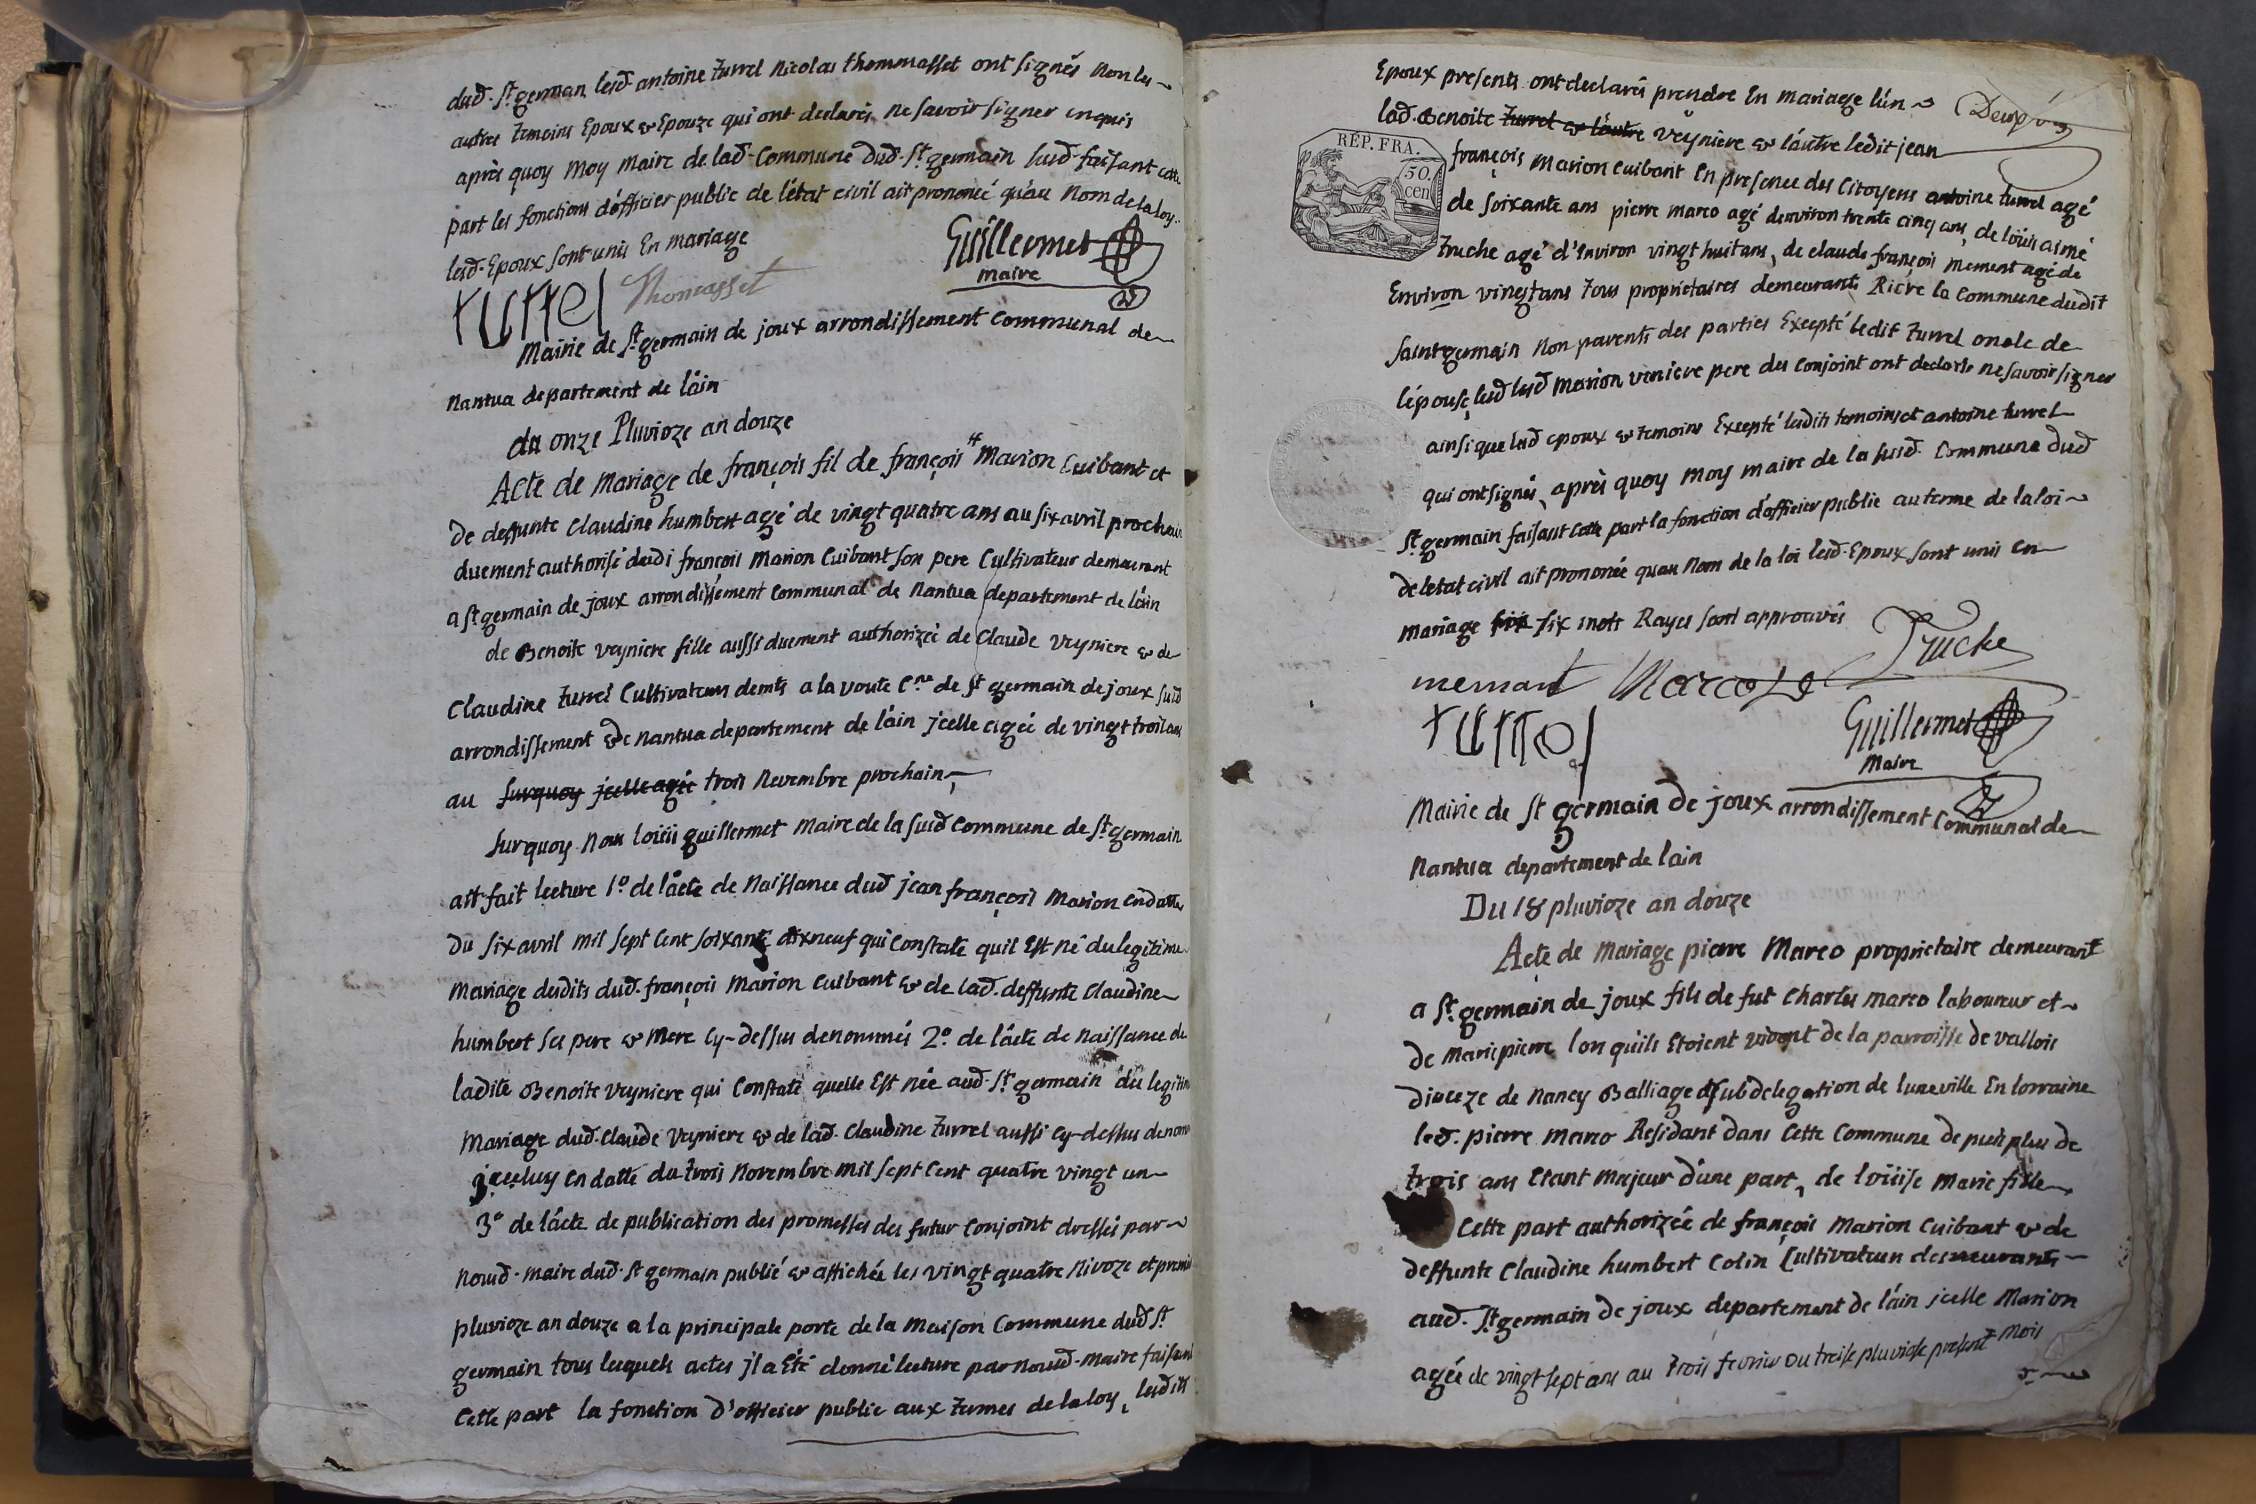 dud. St. germain lesd. antoine turrel Nicolas thommasset ont signés Non les
autres temoins Epoux & Epouze qui ont declarés ne savoir signer enquis
après quoy Moy Maire de lad. Commune dud. St. germain susd. faisant cette
part les fonctions d'officier public de l'état civil ait prononcé qu'au Nom de la loy
lesd. Epoux sont unis En mariage
turrel Thomasset Guillermet
maire
Mairie de St. germain de joux arrondissement Communal de
Nantua departement de l'ain
du onze Pluvioze an douze
Acte de Mariage de françois fil de françois Marion Cuibant et
de deffunte Claudine humbert agé de vingt quatre ans au six avril prochain
duement authorisé dudi françois Marion Cuibant son pere Cultivateur demeurant
a St. germain de joux arrondissement Communal de Nantua departement de l'ain
de Benoite Veyniere fille aussi duement authorizéé de Claude Veyniere & de
Claudine turrel Cultivateurs demts a la voute Cne de St germain de joux susd
arrondissement de Nantua departement de l'ain jcelle agéé de vingt trois ans
au surquoy jcelle agéé trois Novembre prochain
surquoy Nous loüis guillermet Maire de la susd Commune de St. germain
ait fait lecture 1º de l'acte de Naissance dud jean françois Marion en datte
du six avril mil sept Cent soixante dixneuf qui Constate quil Est né du legitime
Mariage desdits dud. françois Marion Cuibant & de lad. deffunte Claudine
humbert ses pere & Mere Cy-dessus denommés 2º. de l'acte de Naissance de
ladite Benoite Veyniere qui Constate quelle Est née aud. St. germain du legitim
Mariage dud. Claude Veyniere & de lad. Claudine turrel aussi Cy-dessus denom
jceluy en datte du trois Novembre mil sept Cent quatre vingt un
3º de l'acte de publication des promesses des futur Conjoint dressés par
Nousd. maire dud. St germain publié & affichée les vingt quatre Nivoze et premier
pluvioze an douze a la principale porte de la Maison Commune dud St
germain tous lesquels actes jl a Eté donné lecture par Nousd. Maire faisant
Cette part la fonction d'officier public aux termes de la loy, lesdits
Epoux presents ont declarés prendre En mariage l'un
lad. Benoite turrel & l'autre Veyniere & l'autre ledit jean
RÉP. FRA.
50.
cen
françois Marion Cuibant En presence des Citoyens antoine turrel agé
de soixante ans pierre marco agé d'environ trente cinq ans, de loüis aimé
truche agé d'Environ vingt huit ans, de claude françois mement agé de
Environ vingt ans tous proprietaires demeurants Riére la Commune dudit
saint germain Non parents des parties Excepté ledit turrel oncle de
l'épouse, lesd Marion veniere pere des Conjoint ont declarés ne savoir signer
ainsi que lesd epoux & temoins Excepté lesdits temoins et antoine turrel
qui ont signés, après quoy Moy maire de la susd. Commune dud
St. germain faisant Cette part la fonction d'officier public au terme de la loi
de letat civil ait prononcé quau Nom de la loi lesd. Epoux sont unis en
Mariage six mots Rayes sont approuvés
mement Marco Truche
turrel Guillermet
Maire
Mairie de St germain de joux arrondissement Communal de
Nantua departement de lain
Du 18 pluvioze an douze
Acte de Mariage pierre Marco proprietaire demeurant
a St. germain de joux fils de fut Charles marco laboureur et
de Marie pierre lon quils Etoient vivant de la parroisse de vallois
dioceze de Nancy Balliage & subdelegation de luneville En lorraine
led. pierre Marco Residant dans Cette Commune depuis plus de
trois ans Etant Majeur d'une part, de loüise Marie fille
Cette part authorizéé de françois Marion Cuibant & de
deffunte Claudine humbert Colin Cultivateurs demeurants
aud. St. germain de joux departement de l'ain jcelle Marion
agéé de vingt sept ans au trois fevrier ou treise pluviose present mois